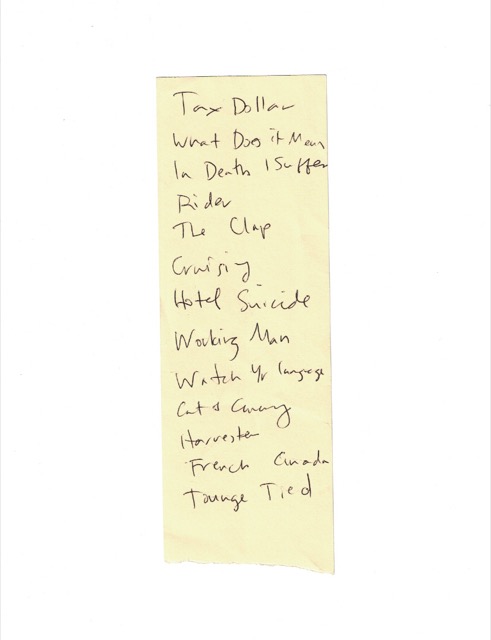 Tax Dollar
What Does it Mean
In Death I Suffer
Rider
The Clap
Cruising
Hotel Suicide
Working Man
Watch Yr language
Cat &
Harvester
French Canada
Tounge Tied